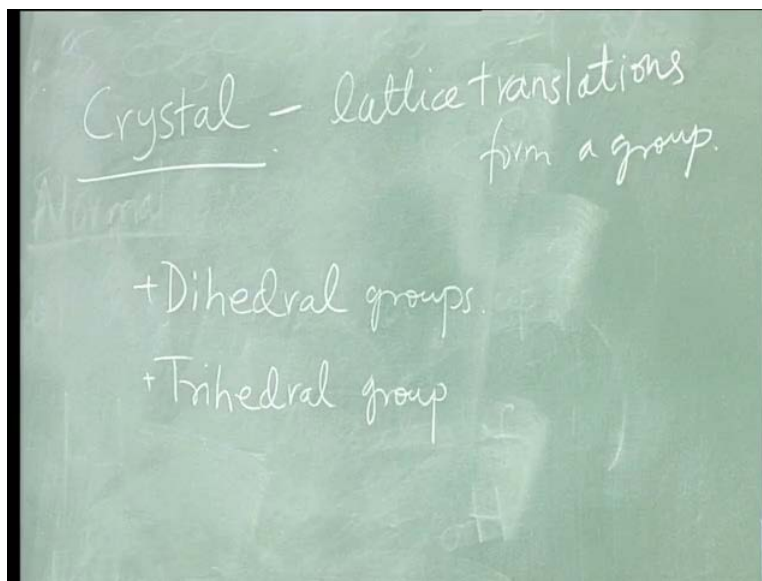 Crystal - lattice translations
form a group.
Normal
+Dihedral groups.
+Trihedral group